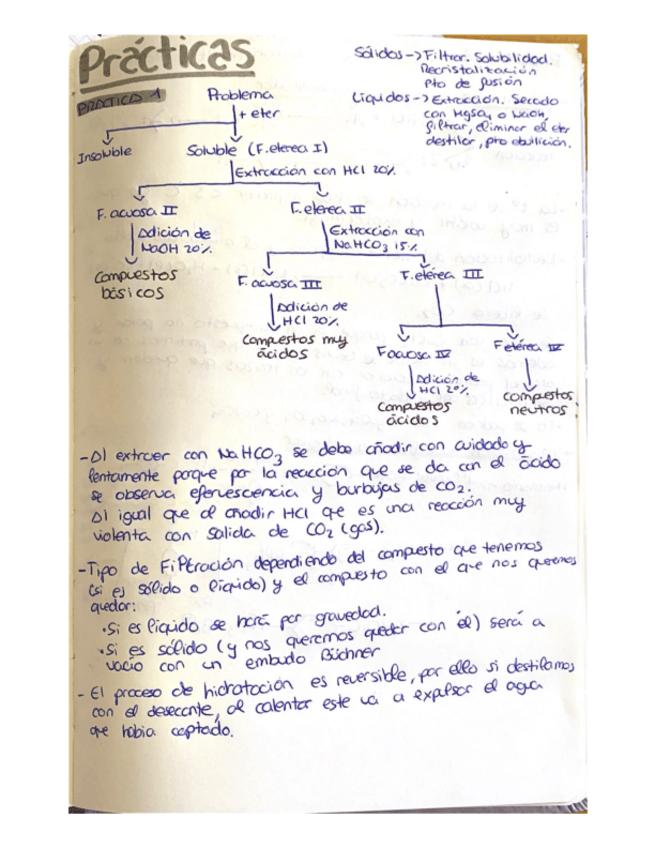 Prácticas
Sólidos -> Filtrar. Solubilidad.
Recristalización
Pto de fusión
Líquidos -> Extracción. Secado
con MgSO4 o NaOH,
filtrar, eliminar el eter
destilar, pto ebullición.
PRÁCTICA 1
Problema
+ eter
Insoluble
Soluble (F. eterea I)
Extracción con HCl 20%
F. acuosa II
F. eterea II
Adición de
NaOH 20%
Extracción con
NaHCO3 15%
Compuestos
básicos
F. acuosa III
F. etérea III
Adición de
HCl 20%
Compuestos muy
ácidos
F acuosa IV
F etérea IV
Adición de
HCl 20%
Compuestos
ácidos
compuestos
neutros
- Al extraer con NaHCO3 se debe añadir con cuidado y
lentamente porque por la reacción que se da con el ácido
se observa efervescencia y burbujas de CO2.
Al igual que al añadir HCl que es una reacción muy
violenta con salida de CO2 (gas).
- Tipo de Filtración dependiendo del compuesto que tenemos
(si es sólido o líquido) y el compuesto con el que nos queremos
quedar:
• Si es líquido se hará por gravedad.
• Si es sólido (y nos queremos quedar con él) será a
vacío con un embudo Büchner
- El proceso de hidratación es reversible, por ello si destilamos
con el desecante, al calentar este va a expulsar el agua
que había captado.